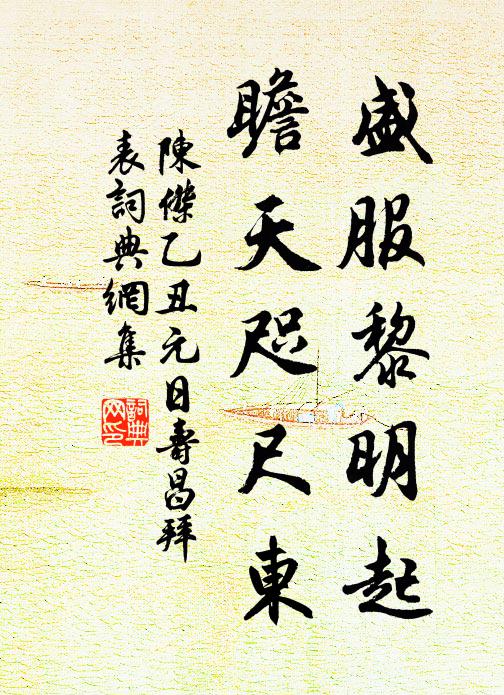 盛服黎明起
瞻天咫尺東
陳傑乙丑元日壽昌拜
表詞典網集
詞典
网印